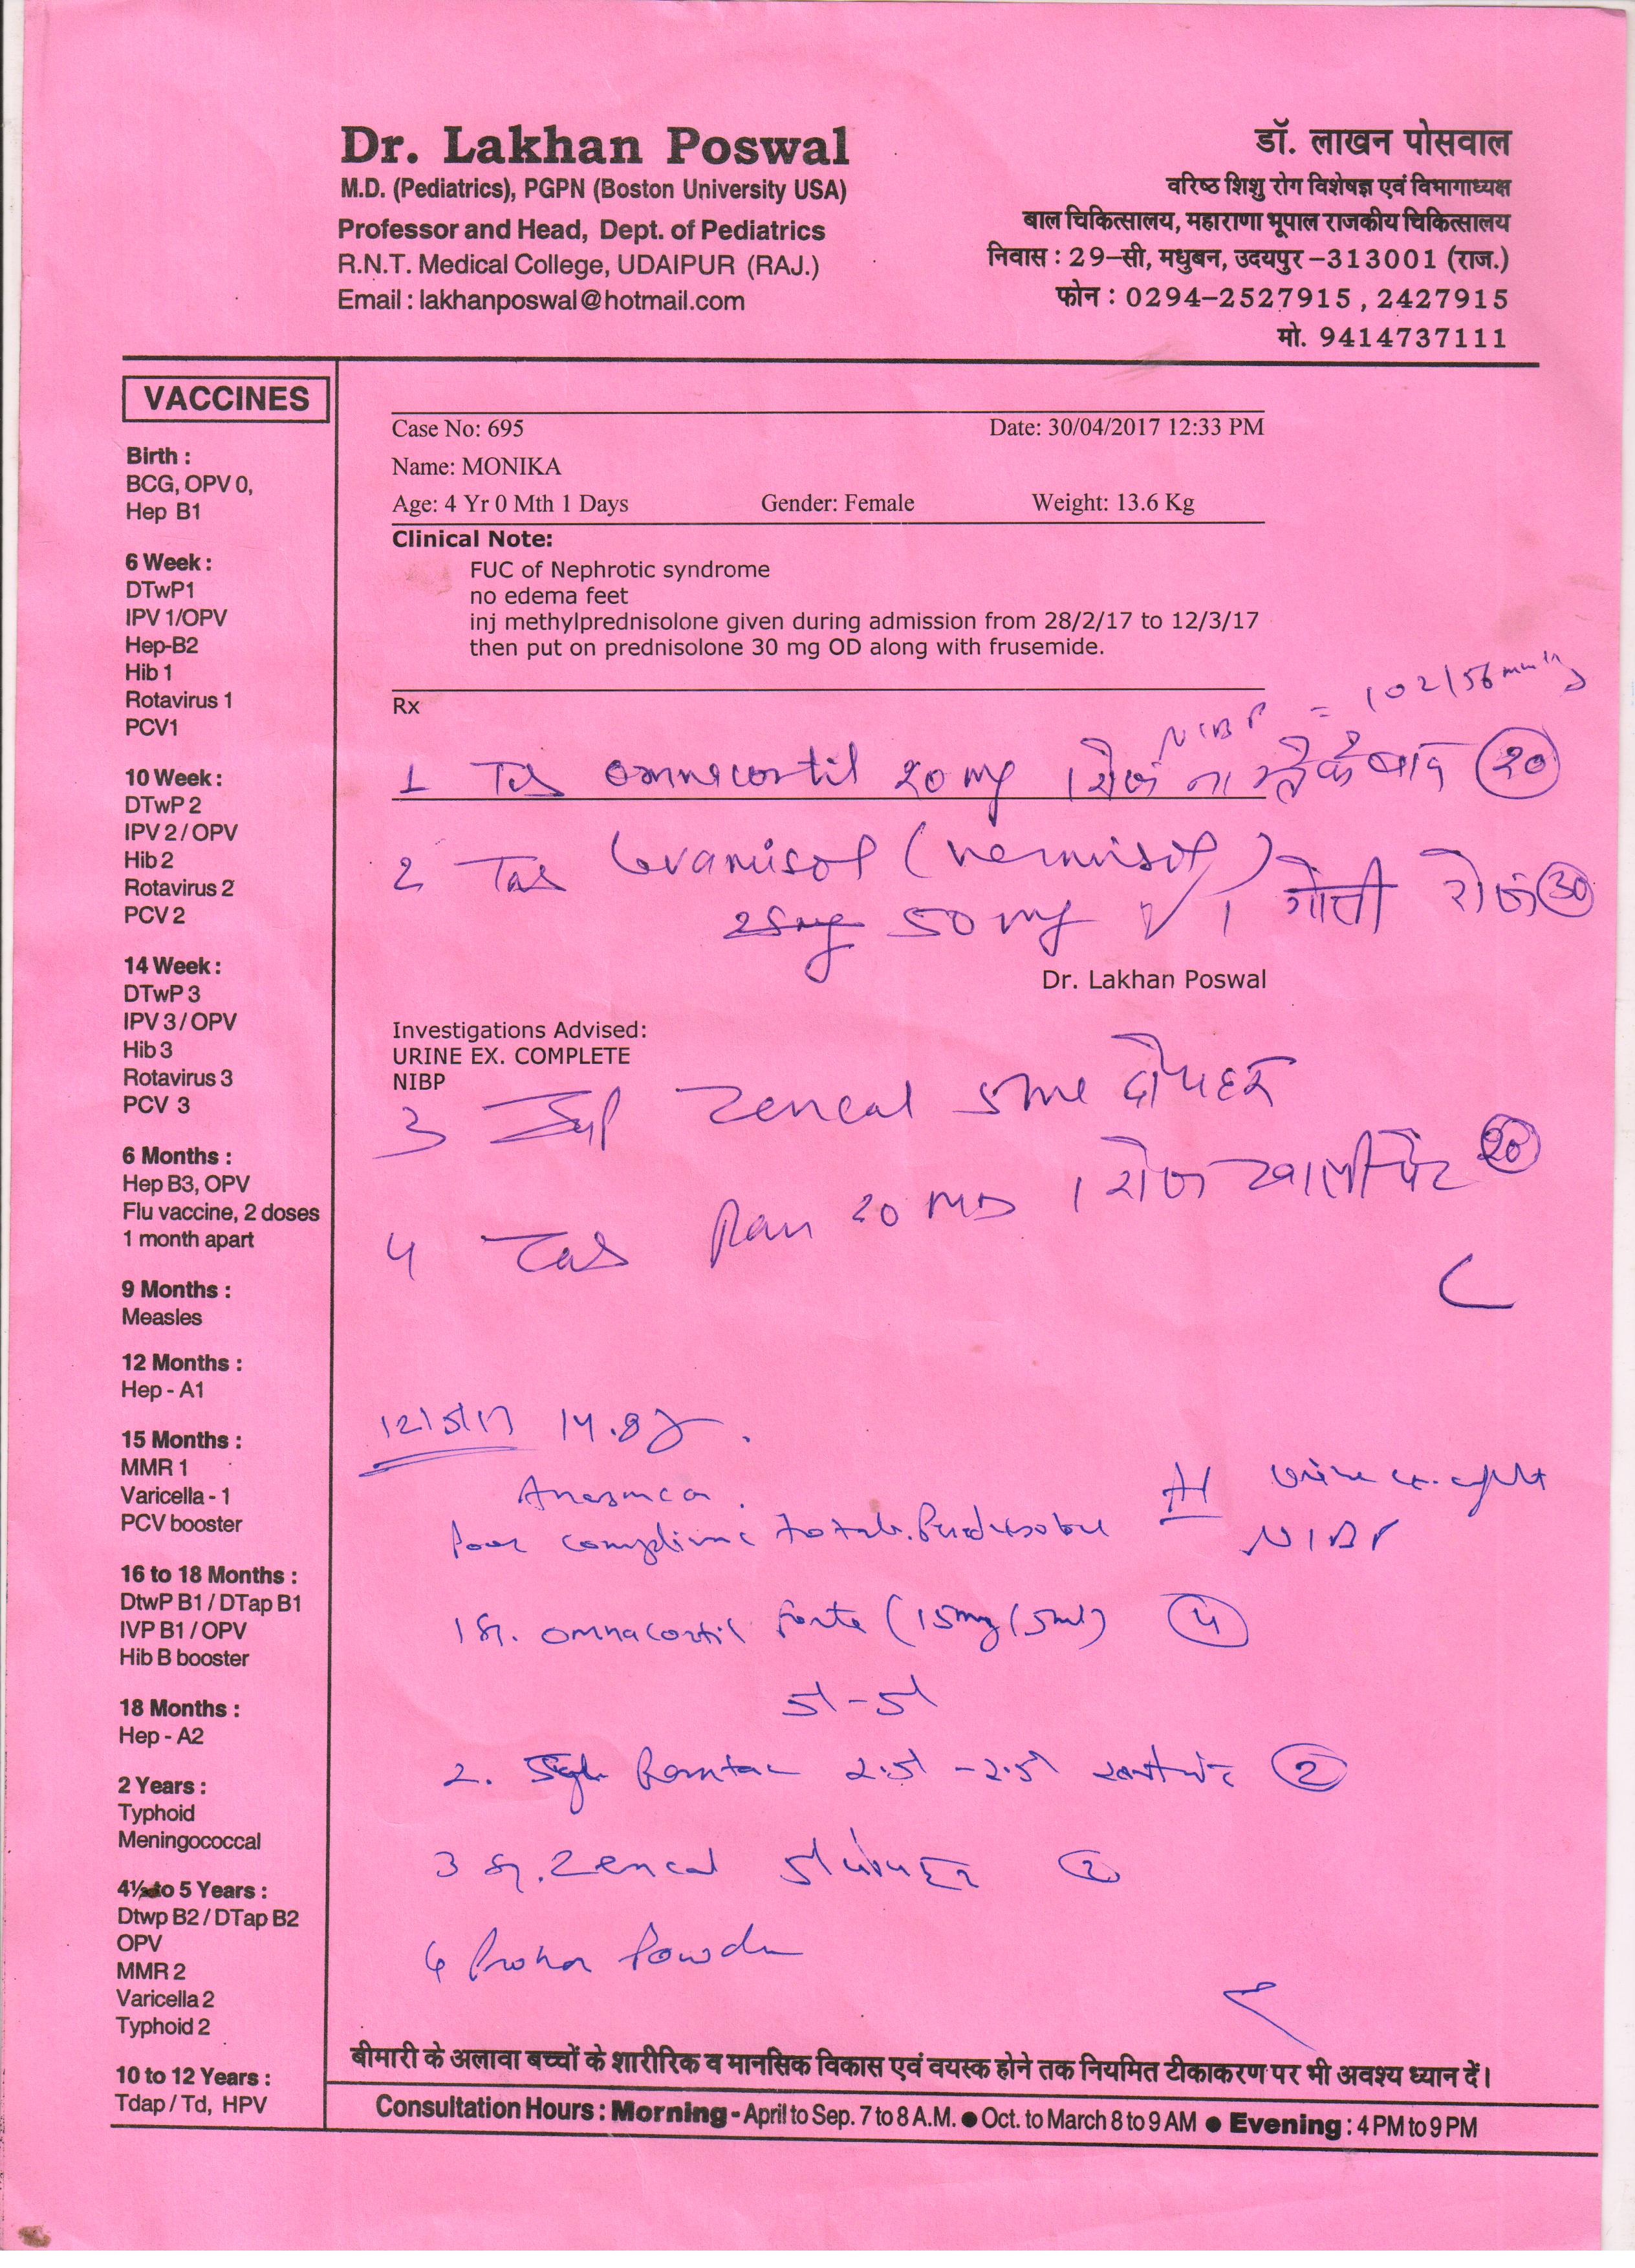 Dr. Lakhan Poswal
M.D. (Pediatrics), PGPN (Boston University USA)
Professor and Head, Dept. of Pediatrics
R.N.T. Medical College, UDAIPUR (RAJ.)
Email : lakhanposwal@hotmail.com
डॉ. लाखन पोसवाल
वरिष्ठ शिशु रोग विशेषज्ञ एवं विभागाध्यक्ष
बाल चिकित्सालय, महाराणा भूपाल राजकीय चिकित्सालय
निवास : 29-सी, मधुबन, उदयपुर -313001 (राज.)
फोन : 0294-2527915 , 2427915
मो. 9414737111
VACCINES
Birth :
BCG, OPV 0,
Hep B1
6 Week :
DTwP1
IPV 1/OPV
Hep-B2
Hib 1
Rotavirus 1
PCV1
10 Week :
DTwP 2
IPV 2 / OPV
Hib 2
Rotavirus 2
PCV 2
14 Week :
DTwP 3
IPV 3 / OPV
Hib 3
Rotavirus 3
PCV 3
6 Months :
Hep B3, OPV
Flu vaccine, 2 doses
1 month apart
9 Months :
Measles
12 Months :
Hep - A1
15 Months :
MMR 1
Varicella - 1
PCV booster
16 to 18 Months :
DtwP B1 / DTap B1
IVP B1 / OPV
Hib B booster
18 Months :
Hep - A2
2 Years :
Typhoid
Meningococcal
4½ to 5 Years :
Dtwp B2 / DTap B2
OPV
MMR 2
Varicella 2
Typhoid 2
10 to 12 Years :
Tdap / Td, HPV
Case No: 695 Date: 30/04/2017 12:33 PM
Name: MONIKA
Age: 4 Yr 0 Mth 1 Days Gender: Female Weight: 13.6 Kg
Clinical Note:
FUC of Nephrotic syndrome
no edema feet
inj methylprednisolone given during admission from 28/2/17 to 12/3/17
then put on prednisolone 30 mg OD along with frusemide.
Rx
NIBP = 102/56 mmHg
1 Tab omnacortil 20 mg 1 रोज नाश्ते के बाद 20
2 Tab Levamisol (Vermisol)
50 mg 1 गोली रोज 30
Dr. Lakhan Poswal
Investigations Advised:
URINE EX. COMPLETE
NIBP
3 Syp Zencal 5ml दोपहर
4 Tab Ran 20 1 रोज खाली पेट 20
12/5/17 14.8
Poor compliance to tab. Prednisolone
Urine ex.
NIBP
1 Sy. omnacortil forte (15mg/5ml) 4
5ml - 5ml
2. Rantac 2.5ml - 2.5ml खाली पेट 2
3 Sy. Zencal 5ml दोपहर 2
4 Powder
बीमारी के अलावा बच्चों के शारीरिक व मानसिक विकास एवं वयस्क होने तक नियमित टीकाकरण पर भी अवश्य ध्यान दें।
Consultation Hours : Morning - April to Sep. 7 to 8 A.M. ● Oct. to March 8 to 9 AM ● Evening : 4 PM to 9 PM